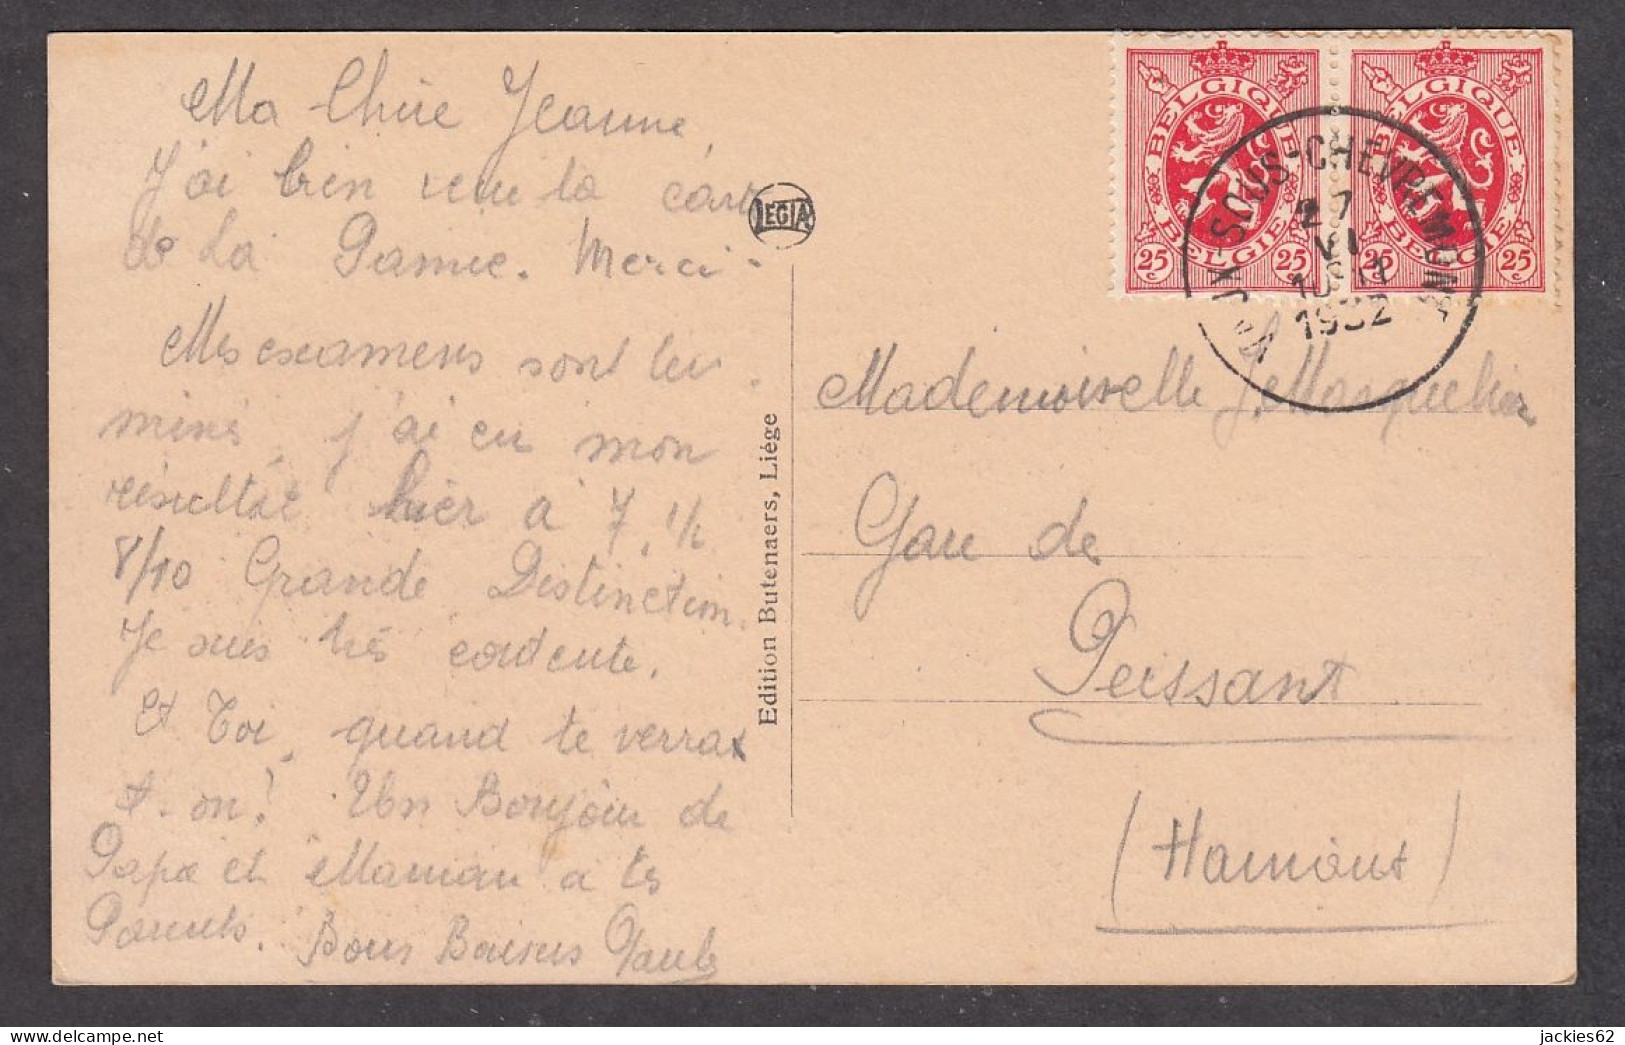 Ma Chère Jeanne,
J'ai bien reçu ta carte
de La Panne. Merci.
Mes examens sont ter
minés, j'ai eu mon
résultat hier à 7.1/2
8/10 Grande Distinction.
Je suis très contente.
Et Toi, quand te verra
t-on! Un Bonjour de
Papa et Maman à tes
Parents. Bons Baisers Paule
LEGIA
Edition Butenaers, Liége
BELGIQUE
BELGIE
25 c 25 c
BELGIQUE
BELGIE
25 c 25 c
VAUX-SOUS-CHÈVREMONT
27
VI
1932
Mademoiselle J. Masquelier
Gare de
Peissant
(Hainaut)
jackies62